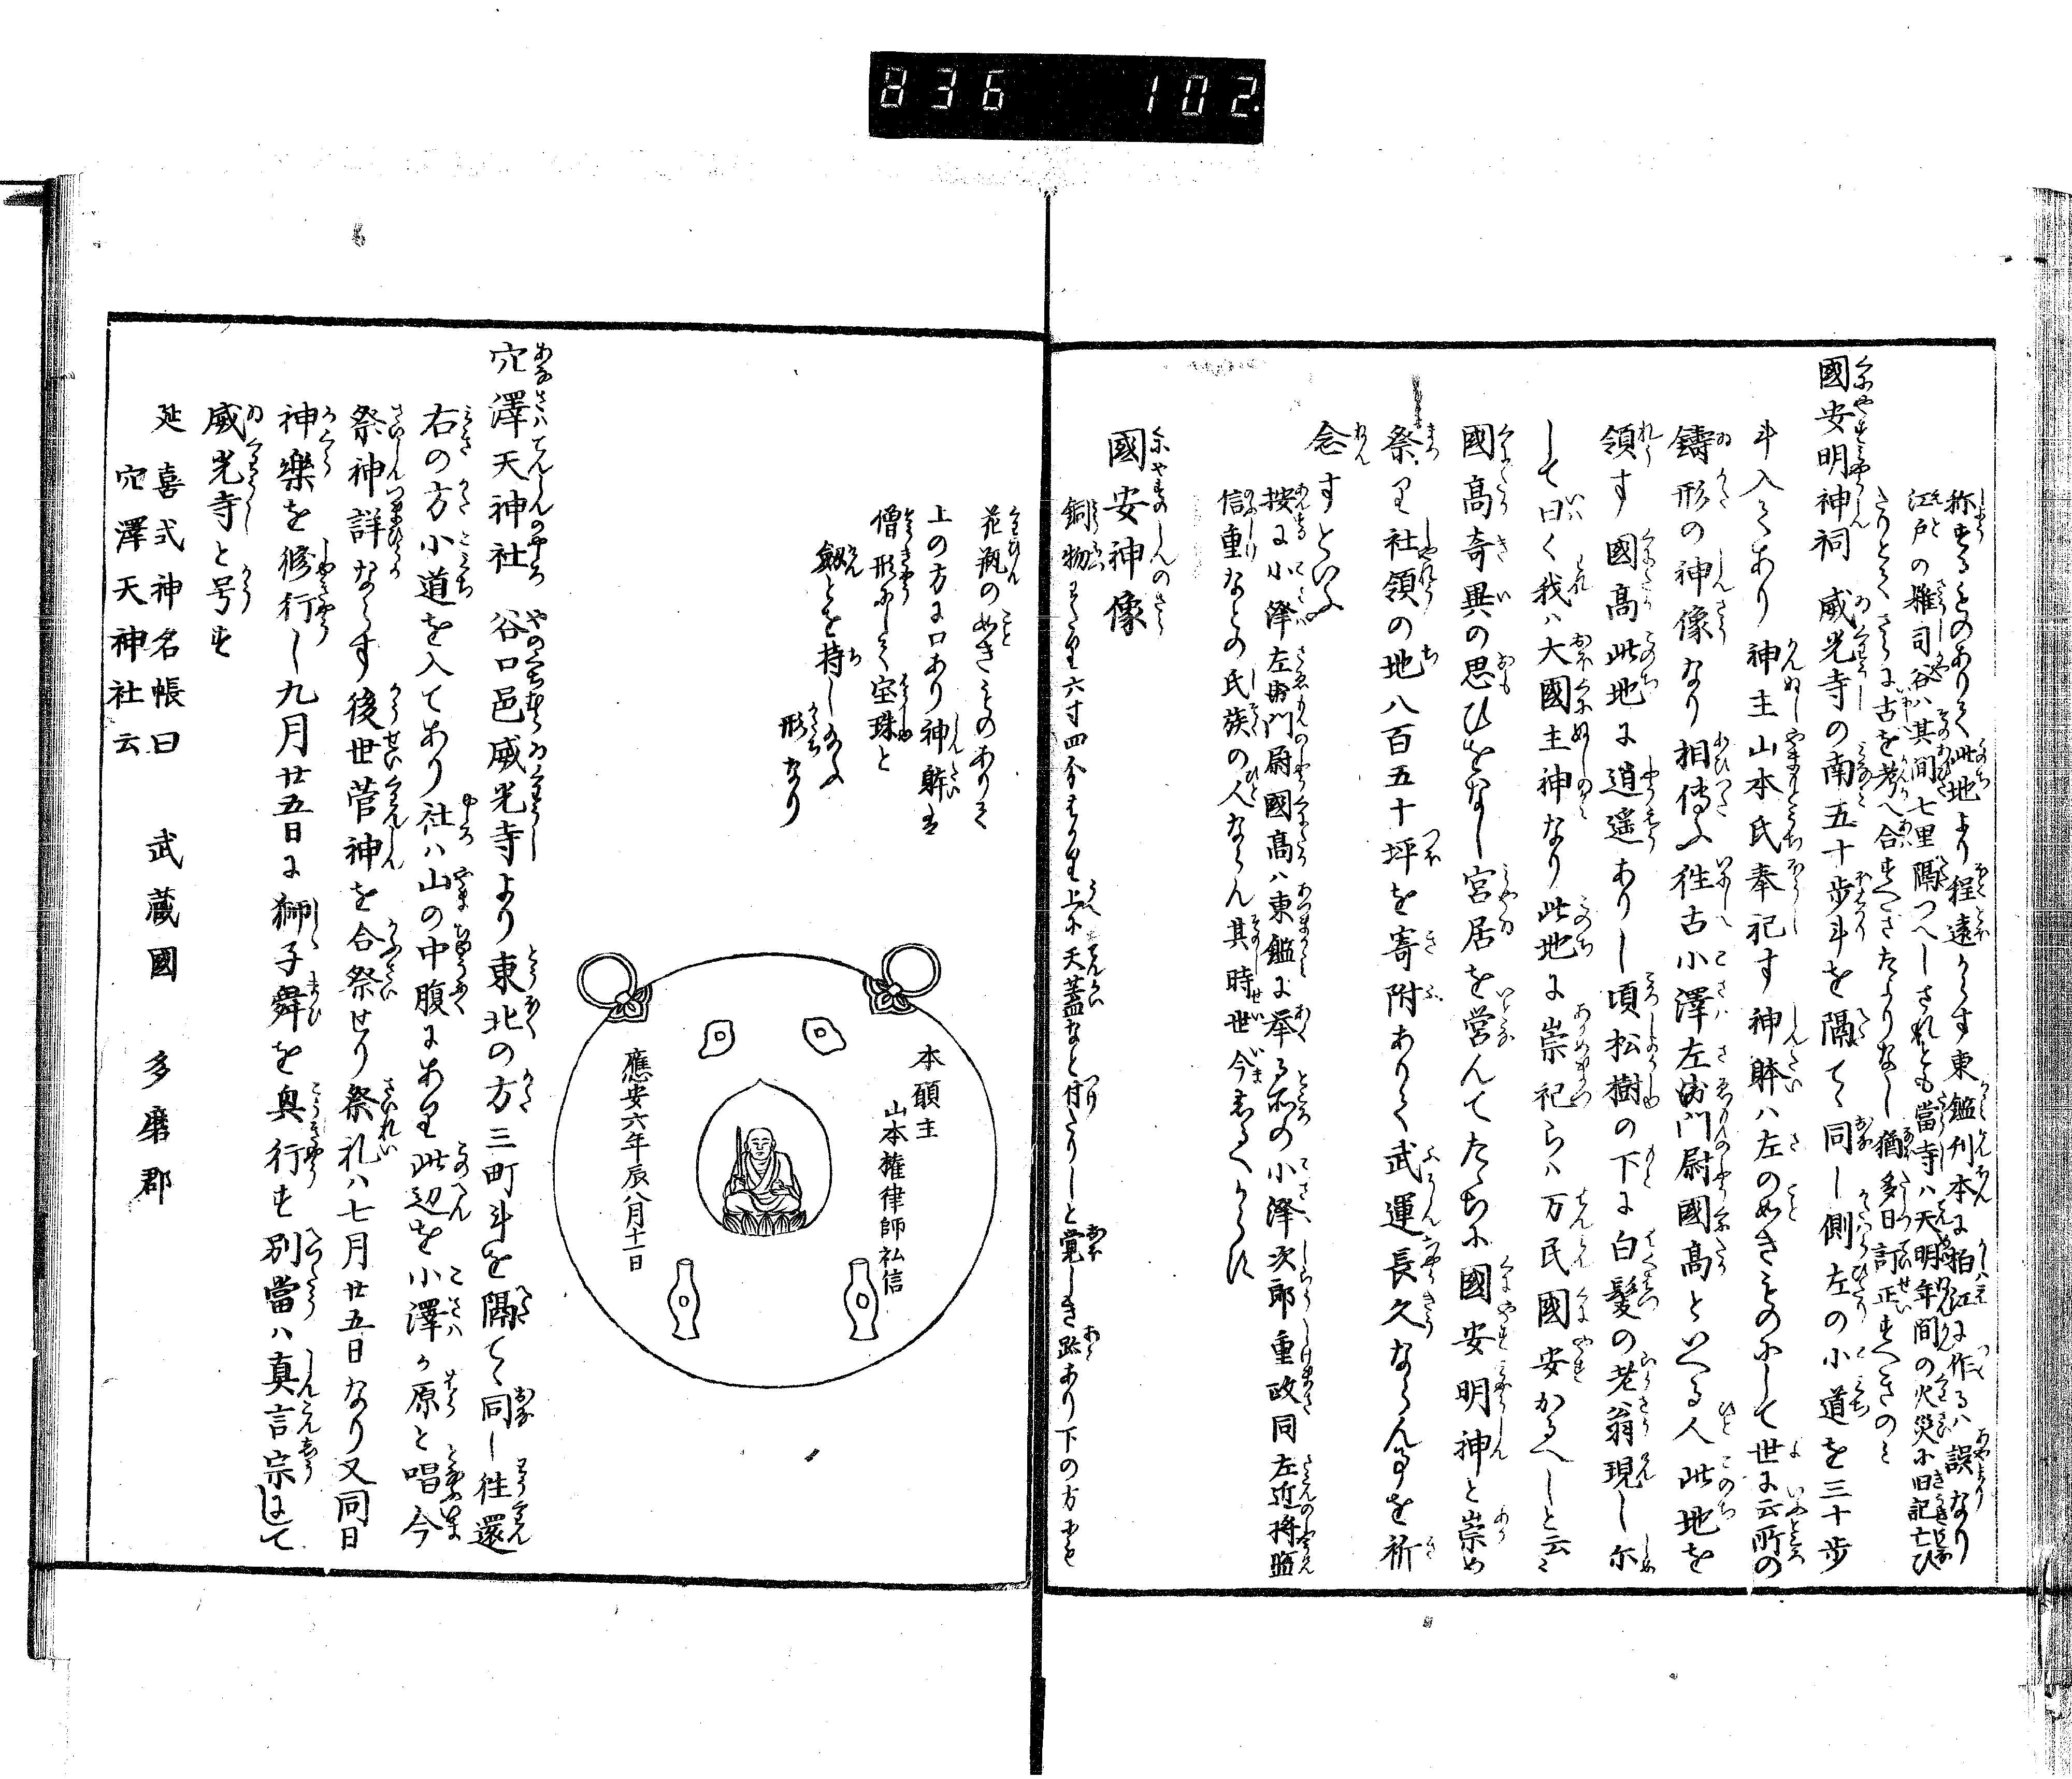 836 102
称するものありて此地より程遠からす東鑑刊本に狛江に作るハ誤なり
江戸の雑司谷ハ其間七里隔つへしされとも當寺ハ天明年間の火災に旧記亡ひ
たりとてさらに古を考へ合すへきたよりなし猶多日訂正すへきのミ
國安明神祠 威光寺の南五十歩斗を隔てゝ同し側左の小道を三十歩
斗入てあり神主山本氏奉祀す神躰ハ左の如きものにして世に云所の
鑄形の神像なり相傳ふ往古小澤左衛門尉國高といへる人此地を
領す國高此地に逍遥ありし頃松樹の下に白髪の老翁現し尓
して曰く我ハ大國主神なり此地に崇祀らハ万民國安かるへしと云々
國高奇異の思ひをなし宮居を営んてたゝちに國安明神と崇め
祭り社領の地八百五十坪を寄附ありて武運長久ならん事を祈
念すといふ
按に小澤左衛門尉國高ハ東鑑に挙る所の小澤次郎重政同左近将監
信重なとの氏族の人ならん其時世今しるへからす
國安神像
銅物にてわたり六寸四分はかり上に天蓋なと付たりしと覚しき跡あり下の方にも
花瓶の如きものありて
上の方に口あり神躰は
僧形にして宝珠と
劔とを持しめふ
形なり
本願主
山本権律師弘信
應安六年辰八月十一日
穴澤天神社 谷口邑威光寺より東北の方三町斗を隔てゝ同し往還
右の方小道を入てあり社ハ山の中腹にあり此辺を小澤か原と唱今
祭神詳ならす後世菅神を合祭せり祭礼ハ七月廿五日なり又同日
神樂を修行し九月廿五日に獅子舞を興行す別當ハ真言宗にして
威光寺と号す
延喜式神名帳曰 武蔵國 多磨郡
穴澤天神社云